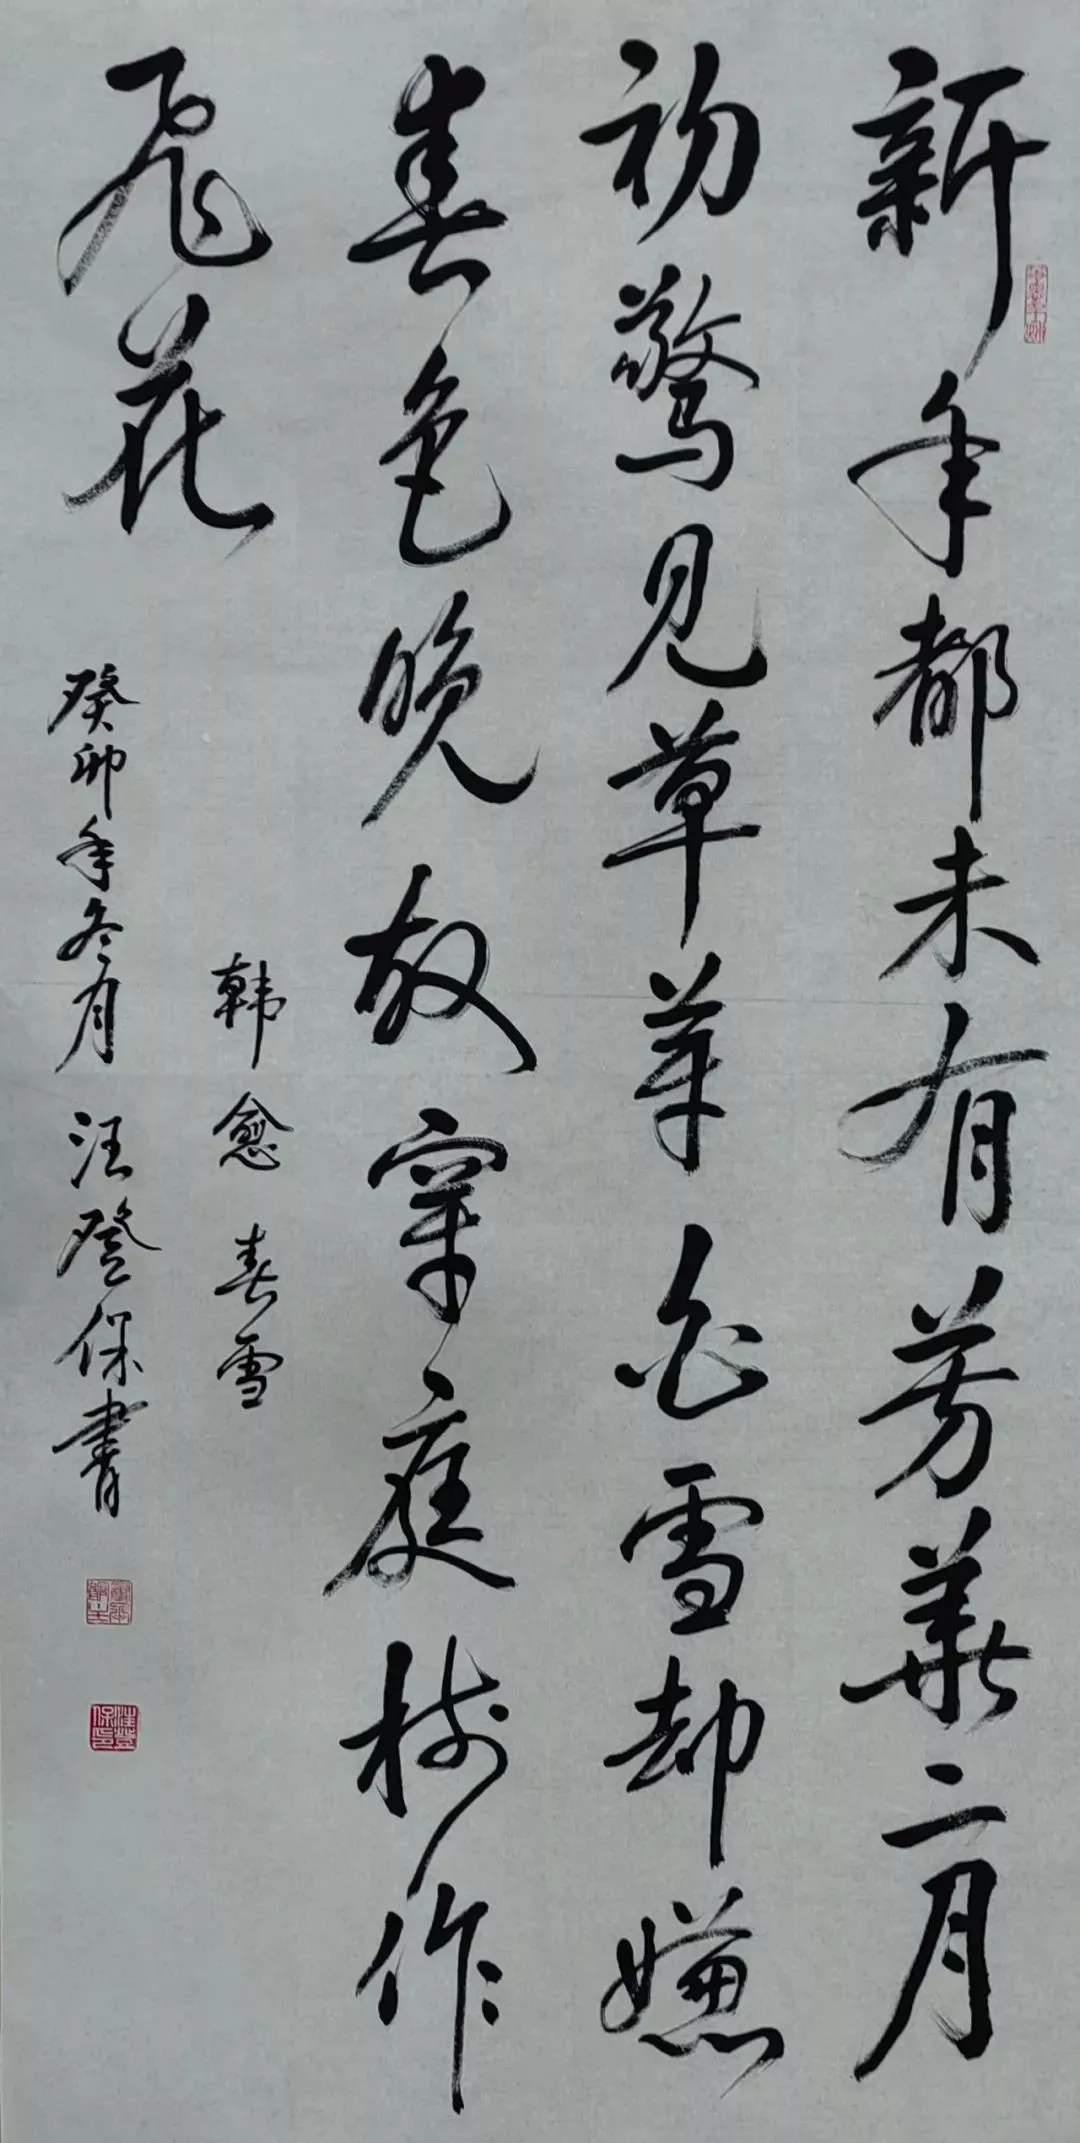 新年都未有芳華二月
初驚見草芽白雪却嫌
春色晚故穿庭樹作
飛花
韩愈 春雪
癸卯年冬月 汪登保書
汪登保印